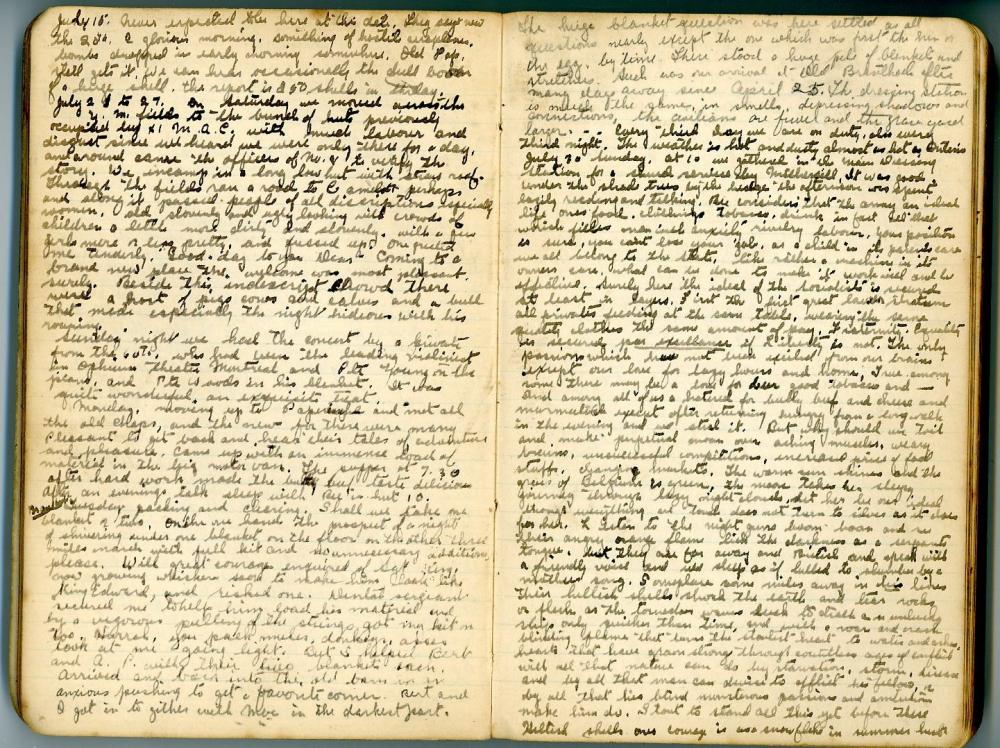 July 15. Never expected to be here at this date. They say now
the 25th. A glorious morning. Something of hostile aeroplanes.
bombs dropped in early morning somewhere. Old Pop.
still gets it. We can hear occasionally the dull boom
of a huge shell. the report is 250 shells in today.
July 21 to 27. On Saturday we moved across the
fields to the bunch of huts previously
occupied by #1 M.A.C. with much labour and
disgust since we heard we were only there for a day,
and around came the officers of No. 4 to verify the
story. We encamp in a long low hut with straw roof.
Through the fields ran a road to
and along it passed people of all discriptions especially
women, old slovenly and ugly looking with crowds of
children a little more dirty and slovenly. with a few
girls more or less pretty, and fussed up. One greeted
me tenderly, "Good-day to you dear". Coming to a
brand new place the welcome was most pleasant
surely. Beside this indescript crowd there
were a host of pigs cows and calves and a bull
that made especially the night hideous with his
roaring.
Sunday night we had the concert by a private
from the 60th, who had been the leading violinist
in Orpheum Theatre Montreal and Pte Young on the
piano, and Pte Woods in his blanket. It was
quite wonderful, an exquisite treat.
Monday. moving up to and met all
the old chaps, and the new for there were many
Pleasant to get back and hear their tales of adventure
and pleasure. Came up with an immense load of
material in the big motor van. The supper at 7.30
after hard work made the bully beef taste delicious
After an evenings talk sleep with Bert in hut 10.
Tuesday packing and clearing. Shall we take one
blanket or two. On the one hand the prospect of a night
of shivering under one blanket on the floor on the other three
miles march with full kit and no unnecessary additions
please. With great courage enquired of Sgt King,
now growing whiskers soon to make him look like
King Edward, and risked one. Dental sergeant
secured me to help him load his material and
by a vigorous pulling of the strings, got my kit on
too. Hurrah, you pack mules, donkeys, asses
look at me going light. But I helped Bert
and A. P. with their two blankets each
Arrived and back into the old barn in an
anxious pushing to get a favorite corner. Bert and
I got in together with Moe in the darkest part.
The huge blanket question was here settled as all
questions nearly except the one which was first the hen or
the egg, by time. There stood a huge pile of blankets and
stretchers. Such was our arrival at Old Branthoek after
many days away since April 25. The dressing station
is much the same, in smells, depressing shadows and
connections, the civilians are fewer and the grave yard
larger. - - - Every third day we are on duty, also every
third night. The weather is hot and dusty almost as hot as Ontario
July 30 Sunday. at 10 we gathered in the main dressing
station for a church service by It was good
under the shade trees by the hedge. The afternoon was spent
lazily reading and talking. We consider that the army an ideal
life, ones food, clothing, tobacco, drink in fact all that
which fills man with anxiety rivelry labour, your position
is sure, you cant lose your job, as a child in its parents care
we all belong to the state, like rather a machine in its
owners care, what can be done to make it work well and be
supplied. Surely here the ideal of the Socialist is secured
at least in layers. First the first great lower stratum
all privates feeding at the same table, wearing the same
quality clothes the same amount of pay. Fraternity, Equality
is secured par excellence if Liberty is not. The only
passions which have not been exiled from our brains
except our love for lazy hours and home. True among
some there may be a love for beer good tobacco and —
and among all of us a hatred for bully beef and cheese and
marmalade except after returning hungry from a long walk
in the evening and we steal it. But why should we toil
and make perpetual moan over aching muscles, weary
brains, unsuccessful competitions, increased price of food
stuffs, changing markets. The warm sun shines and the
grass of Belgium is green, the moon takes her sleepy
journey through lazy night clouds, let her be our ideal
though everything we touch does not turn to silver as it does
for her. I listen to the night guns boom boom and see
their angry orange flame lick the darkness as a serpents
tongue. But they are far away and British and speak with
a friendly voice and we sleep as if lulled to slumber by a
mothers song. Someplace some miles away in his lines
their hellish shells shock the earth and tear rocks
or flesh as the tornadoes worms suck to death an unlucky
ship only quicker than time, and with a roar and crash
blinding flame that turns the stoutest heart to water and ashes,
hearts that have grown strong through countless ages of conflict
with all that nature can do by starvation, storm, disease
and by all that man can devise to afflict his fellows, or
by all that his blind monstrous passions and ambitions
make him do. Stout to stand all this yet before these
hellish shells ones courage is as a snowflake in summer heat